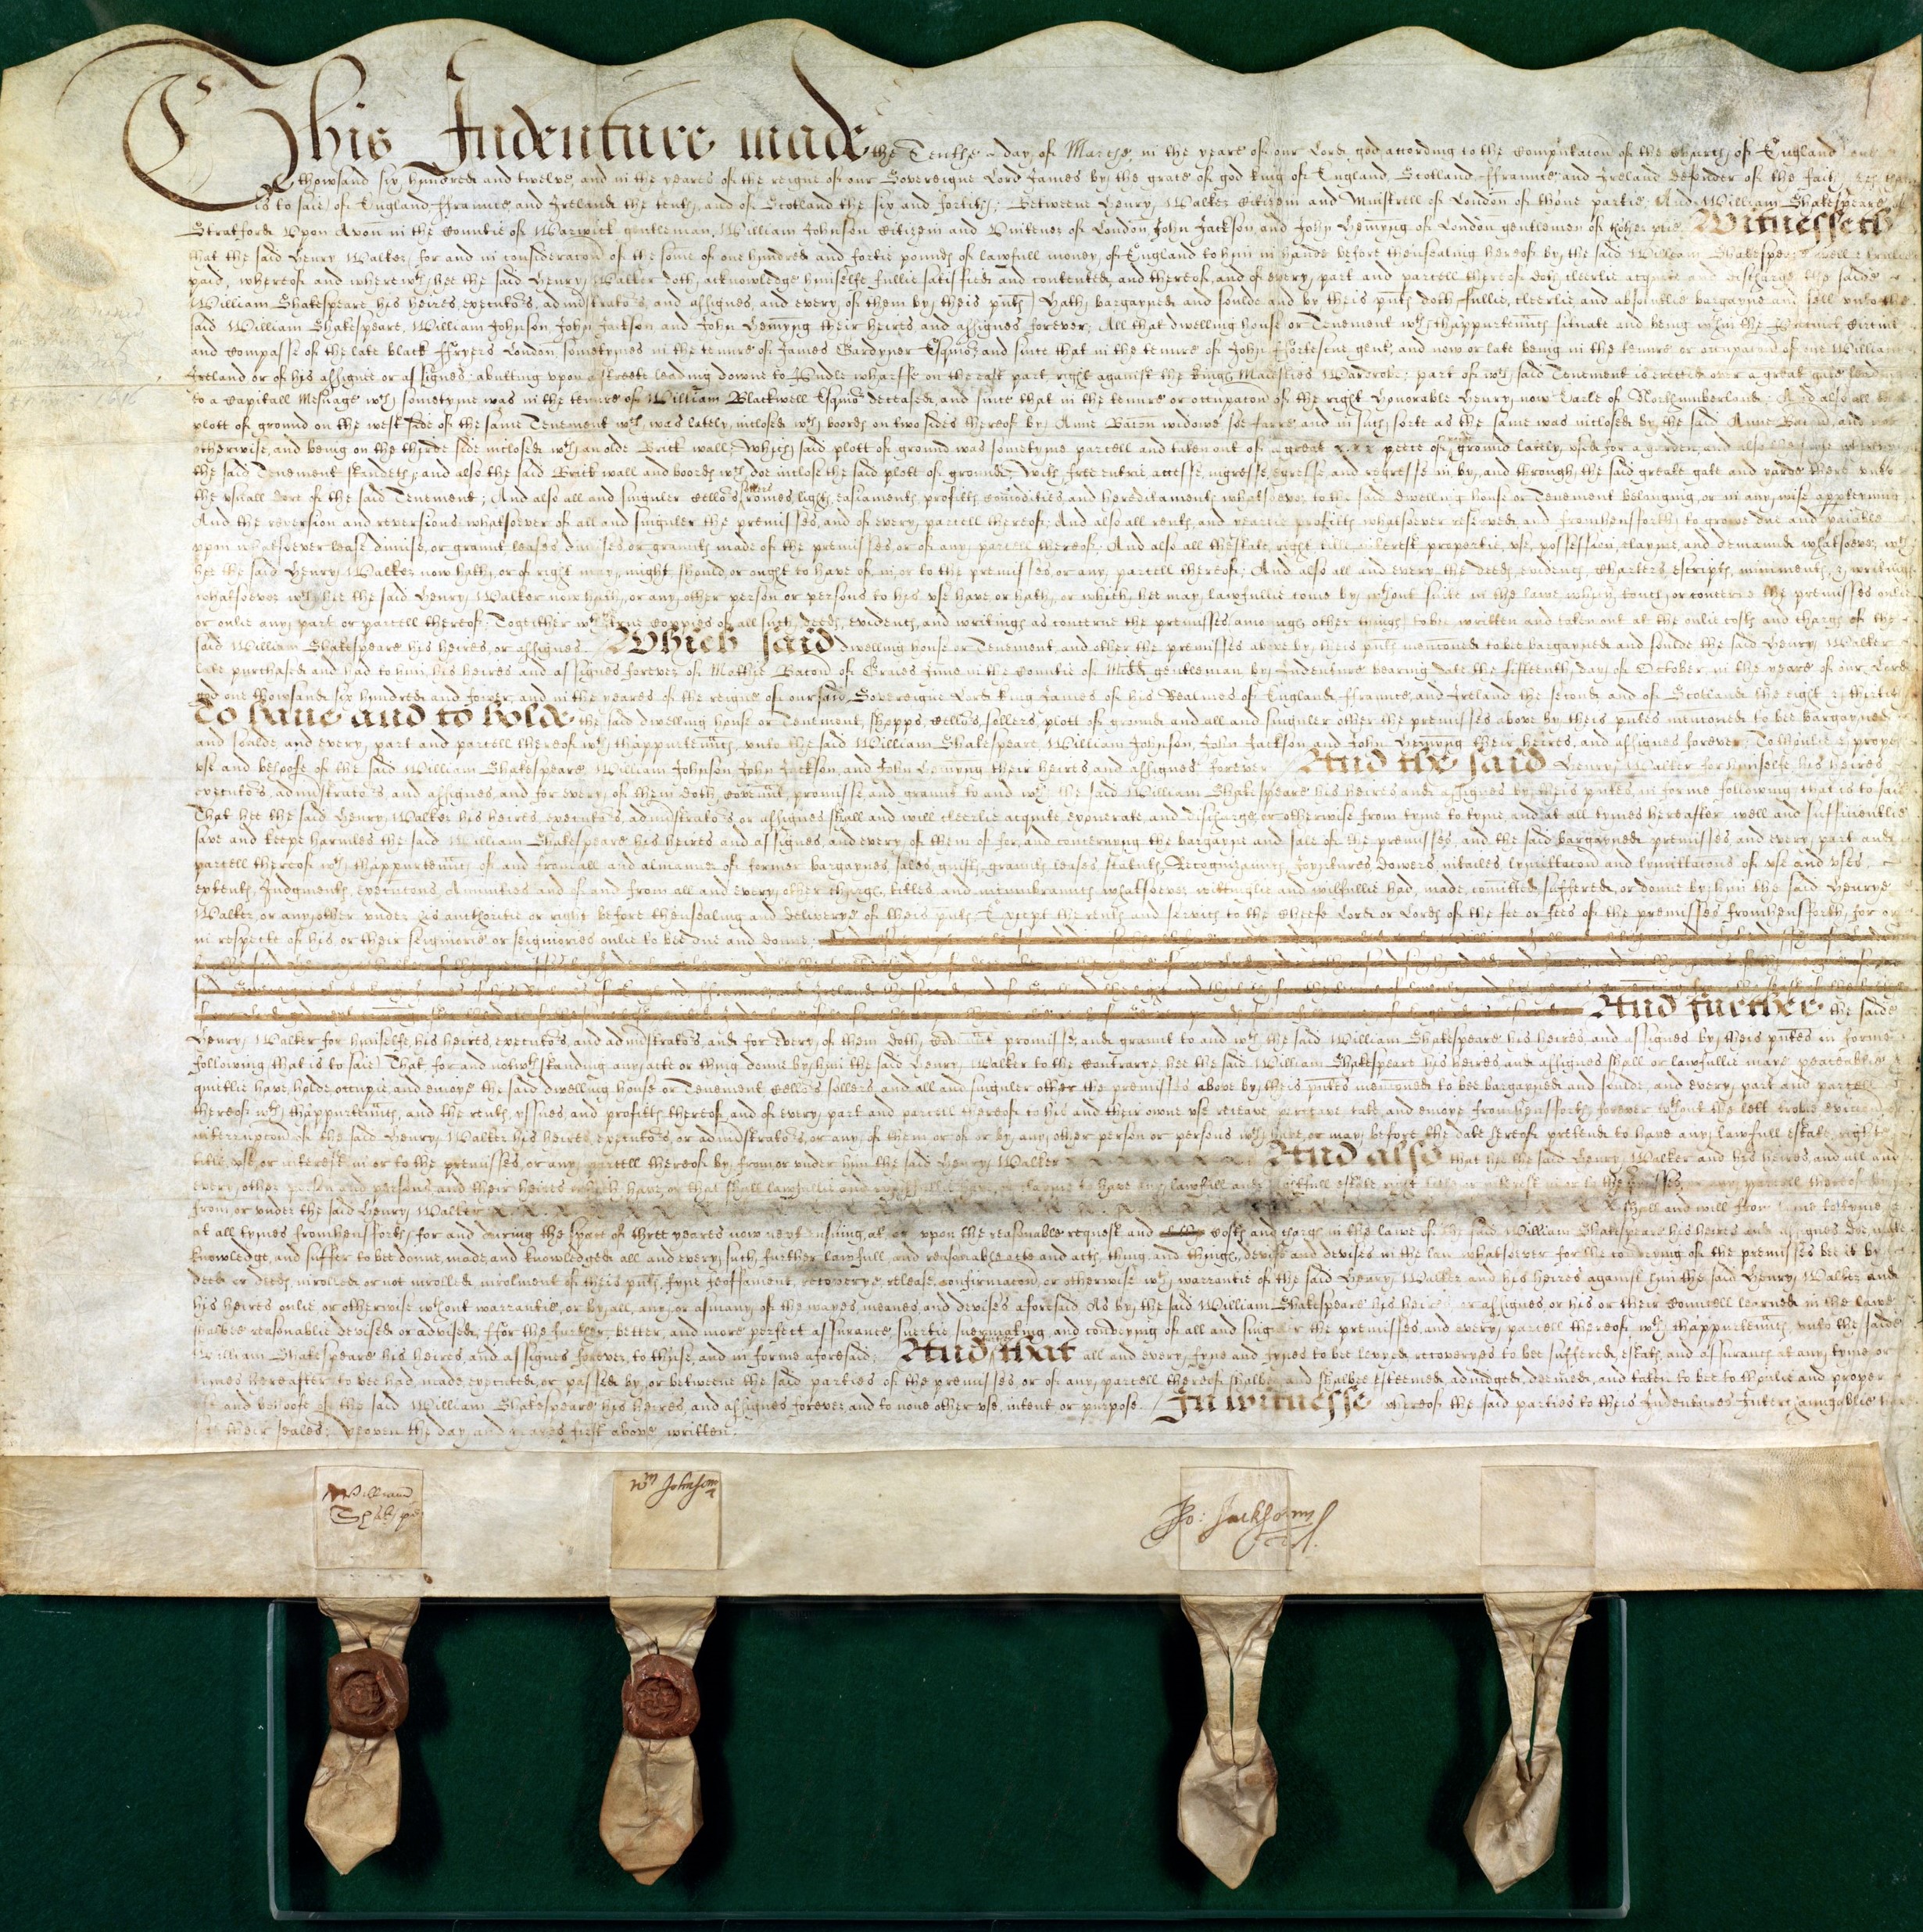 This Indenture made the Tenthe day of Marche, in the yeare of our Lord god according to the Computacon of the Church of England one
thowsand six hundred and twelve, and in the yeares of the reigne of our Sovereigne Lord James by the grace of god king of England, Scotland, ffraunce and Ireland defender of the faith, &c that
is to saie of England, ffraunce and Ireland the tenth, and of Scotland the six and fortith; Betweene Henry Walker Citizein and Minstrell of London of thone partie, And William Shakespeare of
Stratford Vpon Avon in the Countie of Warwick gentleman, William Johnson Citizein and Vintener of London, John Jackson and John Hemyng of London gentlemen of thother ptie Witnesseth
that the said Henry Walker, for and in consideracon of the some of one hundred and fortie poundes of lawfull money of England to him in hande before thensealing hereof by the said William Shakespeare well & trulie
paid, whereof and wherewth hee the said Henry Walker doth acknowledge himselfe fullie satisfied and contented, and thereof, and of every part and parcell thereof doth cleerlie acquite and discharge the saide
William Shakespeare his heires, executors, administrators, and assignes, and every of them by theis pntes Hath bargayned and soulde and by theis pntes doth fullie, cleerlie, and absolutlie bargayne and sell vnto the
said William Shakespeare, William Johnson, John Jackson and John Hemyng their heires and assignes forever; All that dwelling house or Tenement wth thappurtenaunces situate and being wthin the Precinct, circuit
and compasse of the late black ffryers London, sometymes in the tenure of James Gardyner Esquior, and since that in the tenure of John ffortescue gent, and now or late being in the tenure or occupacon of one William
Ireland or of his assignee or assignes; abutting vpon a streete leading downe to Pudle wharffe on the east part, right against the Kinges Maiesties Wardrobe; part of wch said Tenement is erected over a great gate leading
to a capitall Mesuage wch sometyme was in the tenure of William Blackwell Esquior deceased, and since that in the tenure or occupacon of the right Honorable Henry now Earle of Northumberland; And also all that
plott of ground on the west side of the same Tenement wch was lately inclosed wth boordes on two sides thereof by Anne Bacon widowe soe farre and in such sorte as the same was inclosed by the said Anne Bacon, and not
otherwise, and being on the thirde side inclosed wth an olde Brick wall; Which said plott of ground was sometyme parcell and taken out of a great peece of voyde ground lately vsed for a garden; and also the soyle wherevppon
the said Tenement standeth; and also the said Brick wall and boordes wch doe inclose the said plott of ground; With free entrie, accesse, ingresse, egresse, and regresse in, by, and through the said greate gate and yarde there vnto
the vsuall dore of the said Tenement; And also all and singuler cellors, sollers, romes, lightes, easiamentes, profittes, comodities, and hereditamentes whatsoever to the said dwelling house or Tenement belonging, or in any wise apperteyning
And the reversion and reversions whatsoever of all and singuler the premisses, and of every parcell thereof; And also all rentes, and yearlie profittes whatsoever reserved, and fromhensforth to growe due and paiable
vpon whatsoever lease, dimise, or graunt, leases, dimises, or grauntes made of the premisses, or of any parcell thereof; And also all thestate, right, title, interest, propertie, vse, possession, clayme, and demaund whatsoever wch
hee the said Henry Walker now hath, or of right may, might, should, or ought to have of, in, or to the premisses, or any parcell thereof; And also all and every the deedes, evidences, Charters, escriptes, minimentes, & writinges
whatsoever wch hee the said Henry Walker now hath, or any other person or persons to his vse have, or hath, or which hee may lawfullie come by wthout suite in the lawe, which touch or concerne the premisses onlie
or onlie any part or parcell thereof; Together wth true coppies of all such deedes, evidences, and writinges as concerne the premisses amongst other thinges to bee written and taken out at the onlie costes and charges of the
said William Shakespeare his heires, or assignes. Which said dwelling house or Tenement, and other the premisses above by theis pntes mencioned to bee bargayned and soulde the said Henry Walker
late purchased and had to him, his heires and assignes forever of Mathie Bacon of Graies Inne in the Countie of Midd gentleman by Indenture bearing date the fifteenth day of October in the yeare of our Lord
god one thowsand six hundred and fower, and in the yeares of the reigne of our said Sovereigne Lord king James of his Realmes of England, ffraunce and Ireland the second and of Scotland the eight & thirtith
To haue and to holde the said dwelling house or Tenement, shopps, cellors, sollers, plott of ground and all and singuler other the premisses above by theis pntes mencioned to bee bargayned
and soulde and every part and parcell thereof wth thappurtenaunces, vnto the said William Shakespeare, William Johnson, John Jackson and John Hemyng their heires, and assignes forever; To thonlie & proper
vse and behoofe of the said William Shakespeare, William Johnson, John Jackson, and John Hemyng their heires and assignes forever And the said Henry Walker for himselfe, his heires,
executors, administrators and assignes, and for every of them doth covenaunt, promisse, and graunt to and wth the said William Shakespeare his heires and assignes by theis pntes in forme following, that is to saie
That hee the said Henry Walker his heires, executors, administrators or assignes shall and will cleerlie acquite, exonerate, and discharge, or otherwise from tyme to tyme, and at all tymes hereafter well and sufficientlie
save and keepe harmles the said William Shakespeare his heires and assignes, and every of them of, for, and concernyng the bargayne and sale of the premisses, and the said bargayned premisses, and every part and
parcell thereof wth thappurtenaunces of and from all and almanner of former bargaynes, sales, guiftes, grauntes, leases, statutes, Recognizaunces, Joyntures, Dowers, intailes, lymittacon and lymittacons of vse and vses
extentes, Judgmentes, execucons, Annuities, and of and from all and every other charges, titles, and incumbraunces whatsoever wittinglie and wilfullie had, made, comitted, suffered, or donne by him the said Henrye
Walker, or any other vnder his authoritie or right before thensealing and deliverye of theis pntes Except the rentes and services to the Cheefe Lord or Lordes of the fee or fees of the premisses fromhensforth, for or
in respecte of his or their seigniorie or seigniories onlie to bee due and donne;
And further the saide
Henry Walker for himselfe, his heires, executors, and administrators, and for every of them doth covenaunt, promisse, and graunt to and wth the said William Shakespeare his heires, and assignes by theis pntes in forme
following (that is to saie) That for and notwthstanding any acte or thing donne by him the said Henry Walker to the contrarye, hee the said William Shakespeare his heires, and assignes shall or lawfullie maye peaceablie &
quietlie have, holde, occupie, and enioye the said dwelling house or Tenement, Cellors, sollers, and all and singuler other the premisses above by theis pntes mencioned to bee bargayned and soulde, and every part and parcell
thereof wth thappurtenaunces, and the rentes, yssues and profittes thereof, and of every part and parcell thereof to his and their owne vse receave, perceave, take, and enioye fromhensforth forever wthout the lett, troble, eviccon or
interrupcon of the said Henry Walker his heires, executors, or administrators, or any of them or of or by any other person or persons wch have, or may before the date hereof pretend to have any lawfull estate, right
title, vse, or interest in or to the premisses, or any parcell thereof by, from, or vnder him the said Henry Walker And also that hee the said Henry Walker and his heires, and all and
every other person and persons, and their heires which have, or that shall lawfullie and clayme to have any lawfull and rightfull estate, right, title, or interest in or to the premisses, or any parcell thereof by,
from, or vnder the said Henry Walker shall and will from tyme to tyme &
at all tymes fromhensforth for and during the space of three yeares now next ensuing, at, or vpon the reasonable request and costes and charges in the lawe of the said William Shakespeare his heires and assignes doe, make
knowledge, and suffer to bee donne, made, and knowledged all and every such further lawfull and reasonable acte and actes, thing and thinges, devise and devises in the law whatsoever for the conveying of the premisses bee it by
deed or deedes, inrolled or not inrolled, inrolment of theis pntes, fyne, feoffament, recoverye, release, confirmacon, or otherwise wth warrantie of the said Henry Walker and his heires against him the said Henry Walker and
his heires onlie, or otherwise wthout warrantie, or by all, any, or asmany of the wayes, meanes, and devises aforesaid As by the said William Shakespeare his heires, or assignes, or his or their Councell learned in the lawe
shalbee reasonablie devised or advised, ffor the further, better, and more perfect assurance, suertie, suermaking, and conveying of all and singuler the premisses, and every parcell thereof wth thappurtenaunces vnto the saide
William Shakespeare his heires, and assignes forever, to thuse, and in forme aforesaid; And that all and every fyne and fynes to bee levyed, recoveryes to bee suffered, estates, and assurances at any tyme or
tymes hereafter to bee had, made, executed, or passed by, or betweene the said parties of the premisses, or of any parcell thereof shalbee, and shalbee esteemed, adiudged, deemed, and taken to bee to thonlie and proper
vse and behoofe of the said William Shakespeare his heires and assignes forever, and to none other vse, intent or purpose. In witnesse whereof the said parties to theis Indentures Interchaungablie have
sett their seales; Yeoven the day and yeares first above written.
William Shakspe
Wm Johnson
Jo: Jacksonn